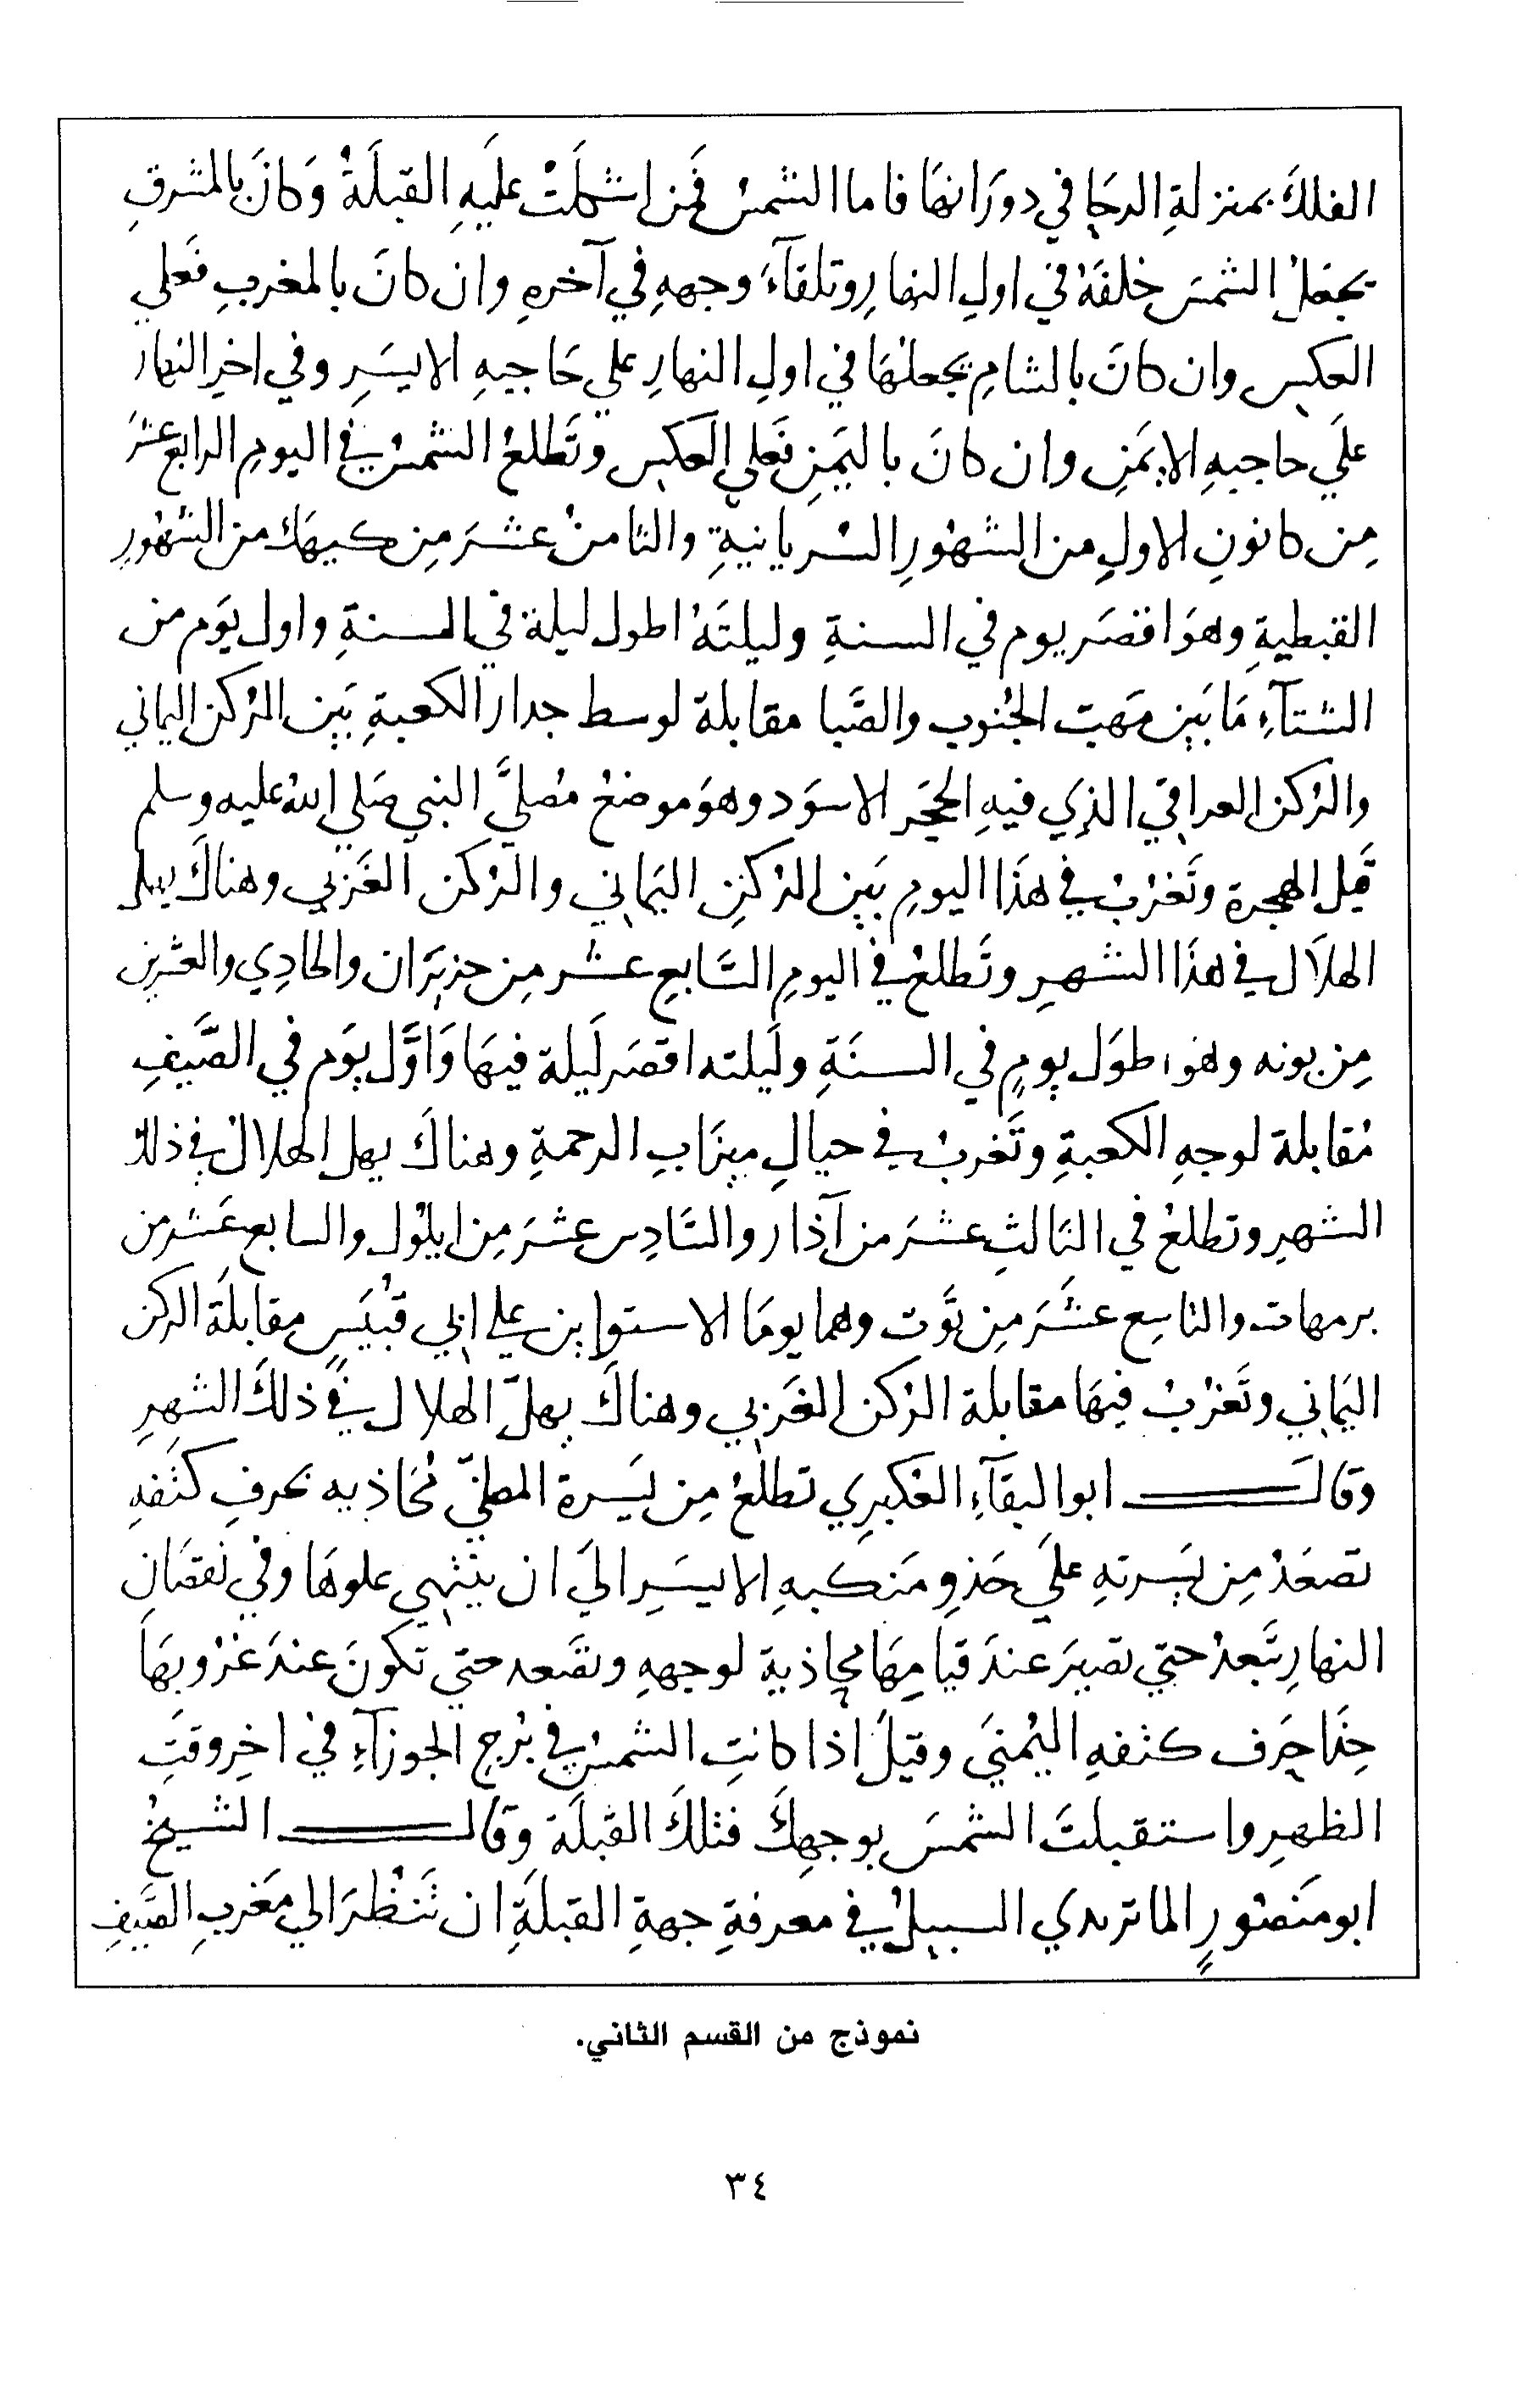 الفلكَ بمنزلةِ الرحَا في دورَانهَا فاما الشمسُ فمَن اشكلَتْ عليَهِ القبلَةُ وَكانَ بالمشرقِ
يجعَلُ الشمسَ خلفَهُ في اولِ النهارِ وتلقآءَ وجههِ في آخرهِ وان كانَ بالمغربِ فَعلي
العكسِ وان كانَ بالشامِ يجعلهَا في اولِ النهارِ علي حَاجبهِ الايسَرِ وفي اخرِ النهار
علَي حاجبهِ الايمَنِ وان كانَ باليَمَنِ فَعلي العكسِ وتَطلعُ الشمسُ في اليومِ الرابع عشرَ
مِن كانونِ الاولِ من الشهُورِ السُريانيةِ والثامنُ عشرَ مِن كيهَك من الشهُورِ
القبطيةِ وهوَ اقصَر يوم في السنةِ وليلتَهُ اطول ليلة في السنةِ واول يوَم من
الشتآءِ مَا بَين مَهبّ الجنُوب والصَّبا مقابلة لوسط جدار الكعبةِ بَين الرُكن اليماني
والرُكن العراقي الذِي فيهِ الحجَر الاسوَد وهوَ موضعُ مُصليَّ النبي صَلي اللهُ عليه وسلم
قبَل الهجرة وتَغرُبُ في هذَا اليومِ بَين الرُكنِ اليمَاني والرُكن الغَربي وهناكَ يهل
الهلاَل في هذَا الشهرِ وتَطلعُ في اليومِ السَّابعِ عشر مِن حزيرَان والحادِي والعشرين
مِن بونه وهوَ اطوَل يومٍ في السنَةِ وليَلته اقصَر ليَلة فيهَا وَاوَّل يوَم في الصَّيفِ
مُقابلة لوجهِ الكعبةِ وتَغربُ في حيالِ ميزَابِ الرحمةِ وهناكَ يهل الهلالُ في ذلك
الشهرِ وتطلعُ في الثالثِ عشرَ من آذار والسَّادِس عشرَ مِن ايلوُل والسابع عَشر من
برمهات والتاسِع عشَرَ مِن توَت وهما يومَا الاستواين علي ابي قُبَيسٍ مقابلَة الركن
اليمَاني وتَغرُبُ فيهَا مقابلة الرُكن الغَربي وهناكَ يهلّ الهلال في ذلكَ الشهرِ
وقالَ ابو البقآءِ العُكبري تطلعُ مِن يَسرة المصليّ مُحَاذيه بحرفِ كتَفهِ
تصعَدُ مِن يَسرتهِ علَي حَذوِ مَنكبهِ الايسَرِ الَي ان ينتهي علوهَا وفي نُقصَان
النهارِ تَبعدُ حتي تصيرَ عندَ قيامِهَا محاذية لوجههِ وتصَعد حتي تكونَ عندَ غرُوبهَا
حذَا حَرف كتفهِ اليُمنيَ وقيلَ اذا كانتِ الشمسُ في بُرجِ الجوزآءِ في اخرِ وقتِ
الظهرِ واستقبلتَ الشمسَ بوجهِكَ فتلكَ القبلَة وقال الشيخُ
ابو مَنصُورٍ الماتريدي السبيلُ في معرفةِ جهةِ القبلَةِ ان تَنظُرَ الي مَغربِ الصَّيفِ
نموذج من القسم الثاني.
٣٤